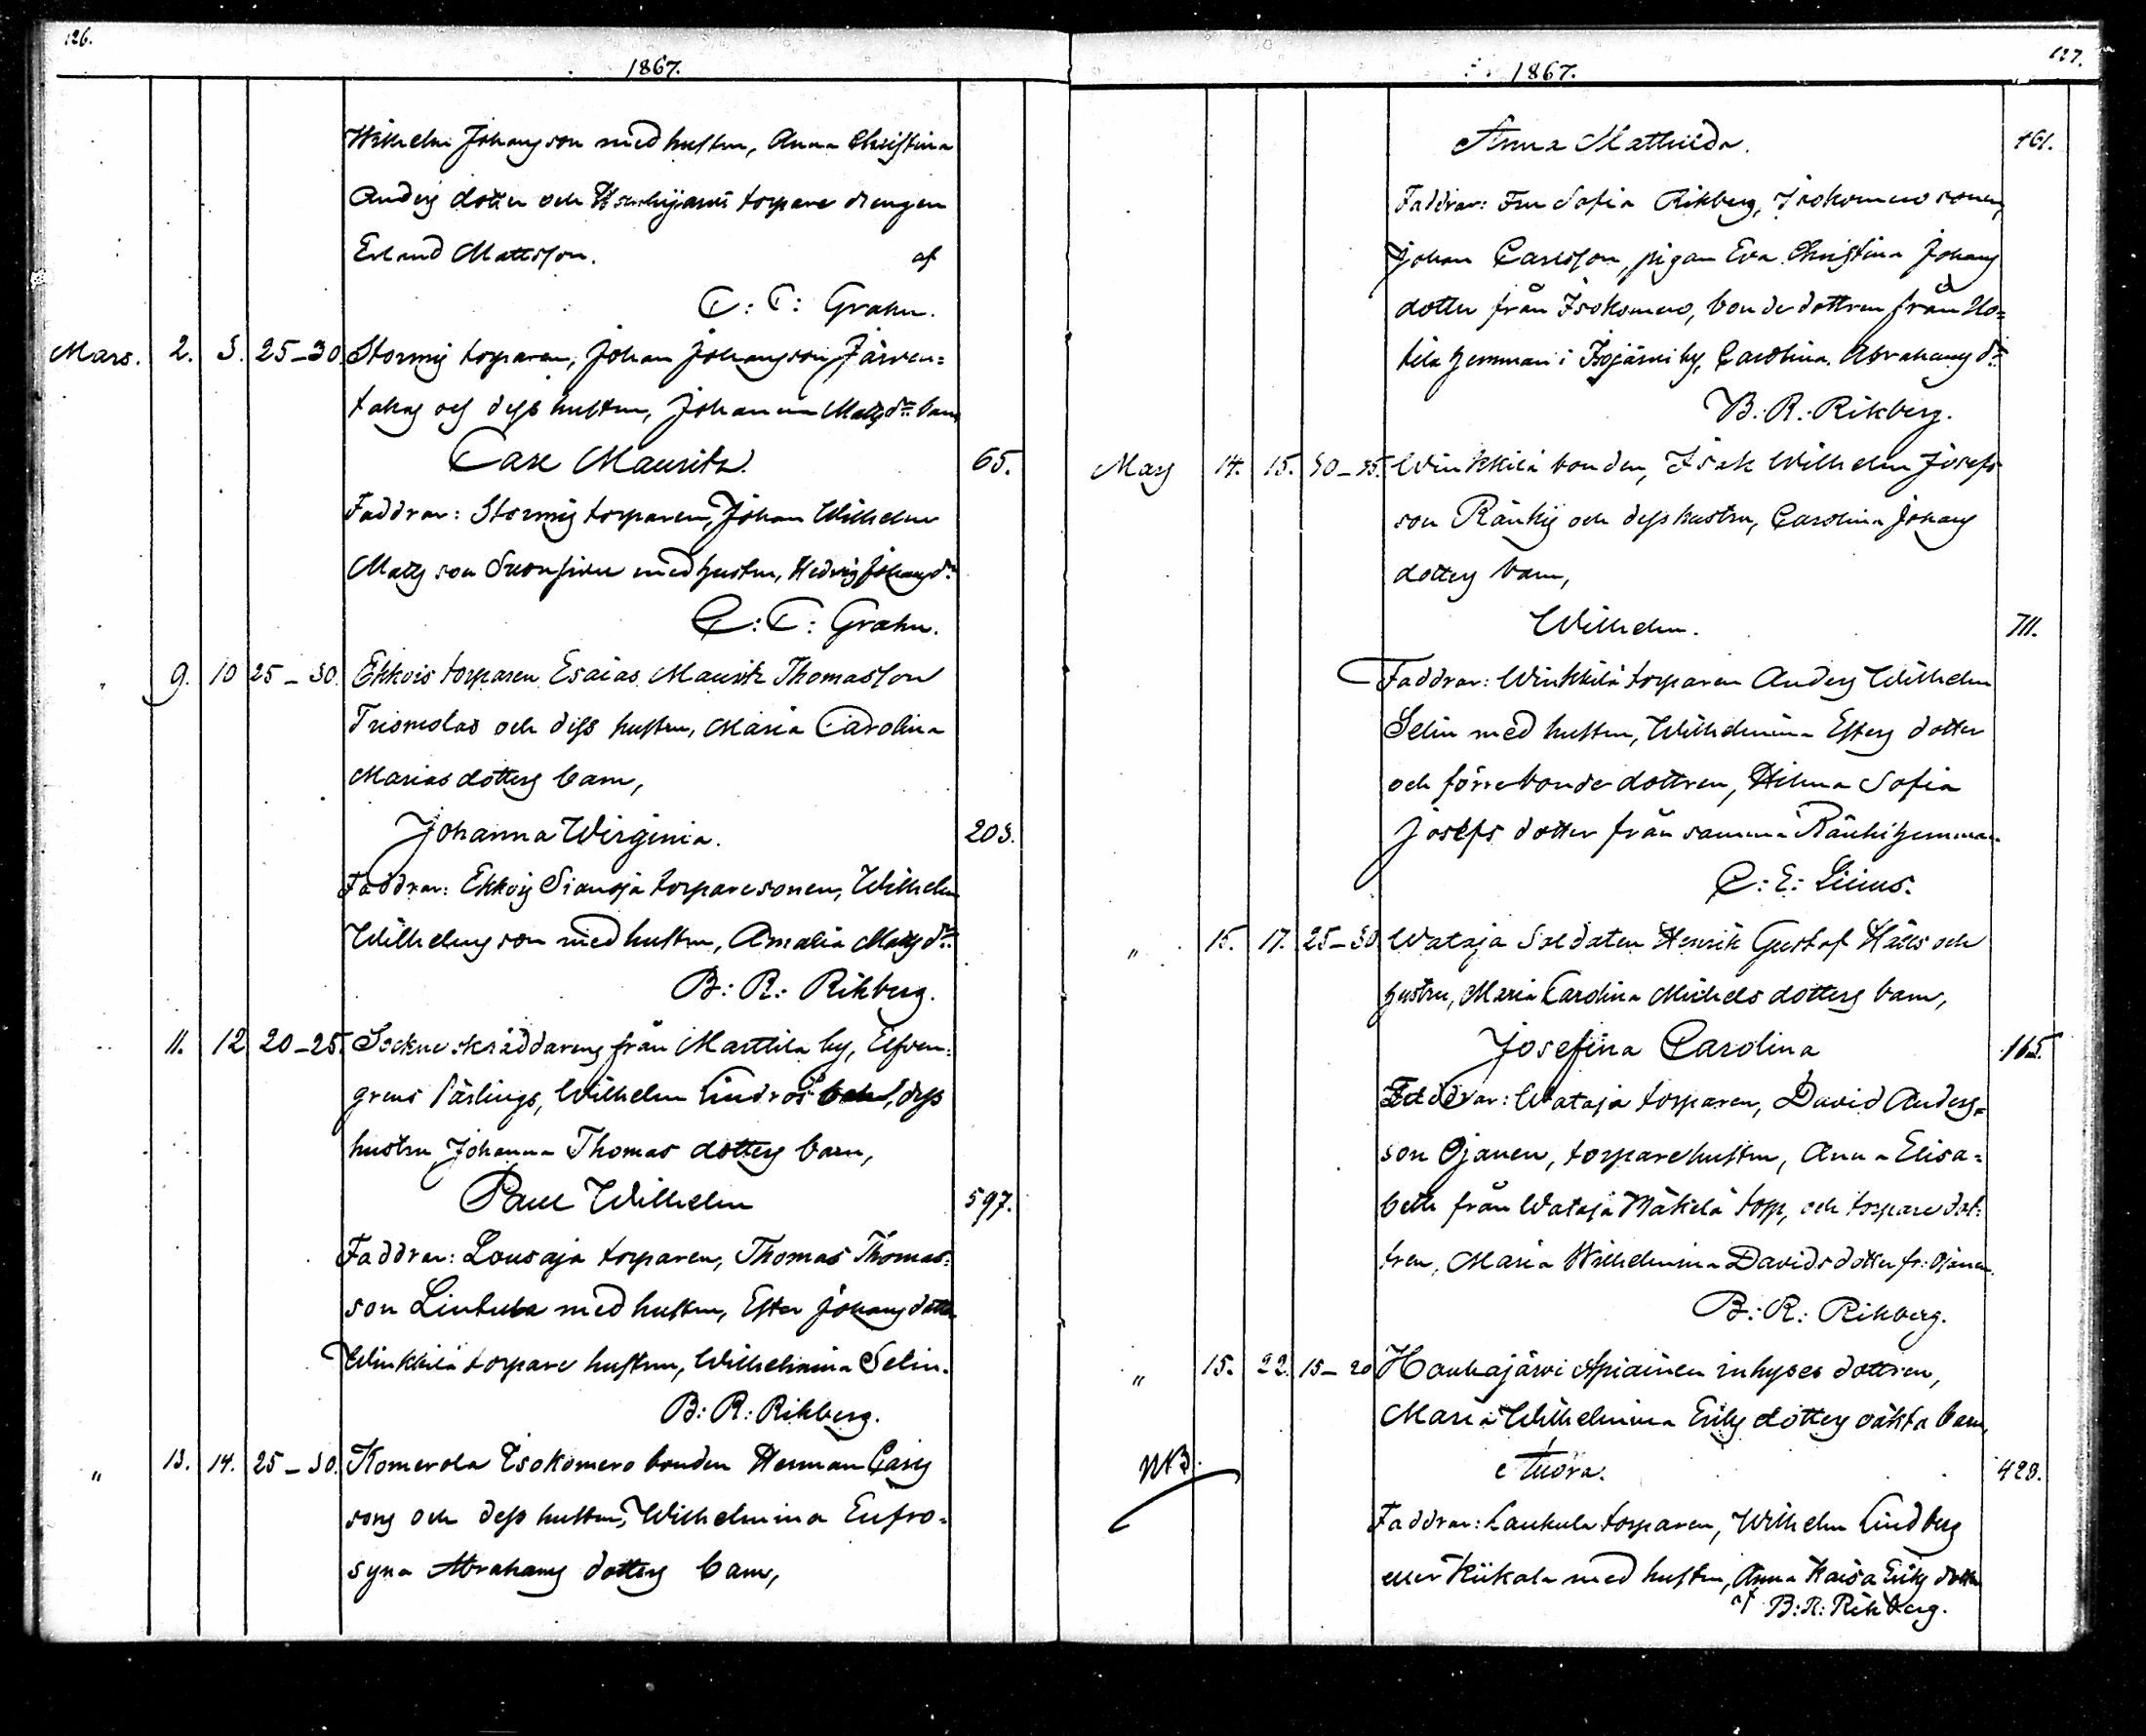 126.
1867.
Wilhelm Johansson med hustru, Anna Christina
Anders dotter och torpare drengen
Erland Mattsson. af
C: T: Grahn.
Mars. 2. 3. 25–30. Stormis torparen, Johan Johansson Järven=
takas och dess hustru, Johanna Mats dr barn
Carl Mauritz. 65.
Faddrar: Stormis torparen, Johan Wilhelm
Mats son med hustru, Hedvig Johans dr
C: T: Grahn.
" 9. 10 25–30. Ekkois torparen Esaias Mauritz Thomasson
och dess hustru, Maria Carolina
Mariasdotters barn,
Johanna Wirginia. 203.
Faddrar: Ekkois Sianoja torparesonen, Wilhelm
Wilhelmsson med hustru, Amalia Mats dr
B: R: Rikberg.
" 11. 12 20–25. Sockneskräddarens från Marttila by, Elfven=
grens lärlings, Wilhelm Lindros dess
hustru Johanna Thomas dotters barn,
Paul Wilhelm 597.
Faddrar: Lousaja torparen, Thomas Thomas=
son Lintula med hustru, Ester Johans dotter
Winkkilä torpare hustrun, Wilhelmina Selin.
B: R: Rikberg.
" 13. 14. 25–30. Komerola Isokomero bonden Herman Carls
sons och dess hustru, Wilhelmina Eufro=
syna Abrahams dotters barn,
127.
1867.
Anna Mathilda. 461.
Faddrar: Fru Sofia Rikberg, Isokomero sonen,
Johan Carlsson, pigan Eva Christina Johans
dotter från Isokomero, bonde dottren från Ho=
tila hemman i Isojärvi by, Carolina Abrahams dr
B: R: Rikberg.
Mars 14. 15. 30–35. Winkkilä bonden, Isak Wilhelm Josefs
son Ränkis och dess hustru, Carolina Johans
dotters barn,
Wilhelm. 711.
Faddrar: Winkkilä torparen Anders Wilhelm
Selin med hustru, Wilhelmina Esters dotter
och förre bonde dottren, Hilma Sofia
Josefs dotter från samma Ränki hemman.
C: E: Lilius.
" 15. 17. 25–30 Wataja Soldaten Henrik Gustaf och
hustru, Maria Carolina Michels dotters barn,
Josefina Carolina 165.
Faddrar: Wataja torparen, David Anders=
son Ojanen, torparehustrun, Anna Elisa=
beth från Wataja Mäkelä torp, och torpare dot=
tren, Maria Wilhelmina Davids dotter fr: Ojanen.
B: R: Rikberg.
" 15. 22. 15–20 Haukajärvi Apiainen inhyses dottren,
Maria Wilhelmina Eriks dotters oäkta barn,
NB. Tuora. 428.
Faddrar: Laukula torparen, Wilhelm Lindberg
eller Kiikala med hustru, Anna Kaisa Eriks dotter
af B: R: Rikberg.